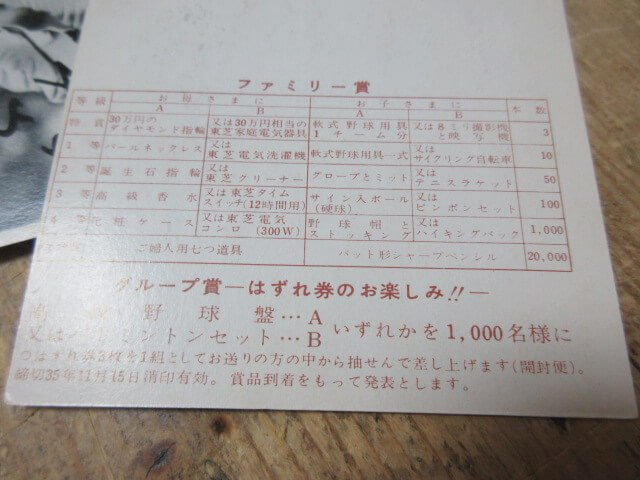 ファミリー賞
等級 お母さまに お子さまに 本数
A B A B
特賞 30万円のダイヤモンド指輪 又は30万円相当の東芝家庭電気器具 軟式野球用具1チーム分 又は8ミリ撮影機と映写機 3
1等 パールネックレス 又は東芝電気洗濯機 軟式野球用具一式 又はサイクリング自転車 10
2等 誕生石指輪 又は東芝クリーナー グローブとミット 又はテニスラケット 50
3等 高級香水 又は東芝タイムスイッチ(12時間用) サイン入ボール(硬球) 又はピンポンセット 100
化粧ケース 又は東芝電気コンロ(300W) 野球帽とストッキング 又はハイキングバック 1,000
ご婦人用七つ道具 バット形シャープペンシル 20,000
グループ賞―はずれ券のお楽しみ!!―
野球盤…A
又は ミントンセット…B いずれかを1,000名様に
はずれ券3枚を1組としてお送りの方の中から抽せんで差し上げます(開封便)。
締切35年11月15日消印有効。賞品到着をもって発表とします。